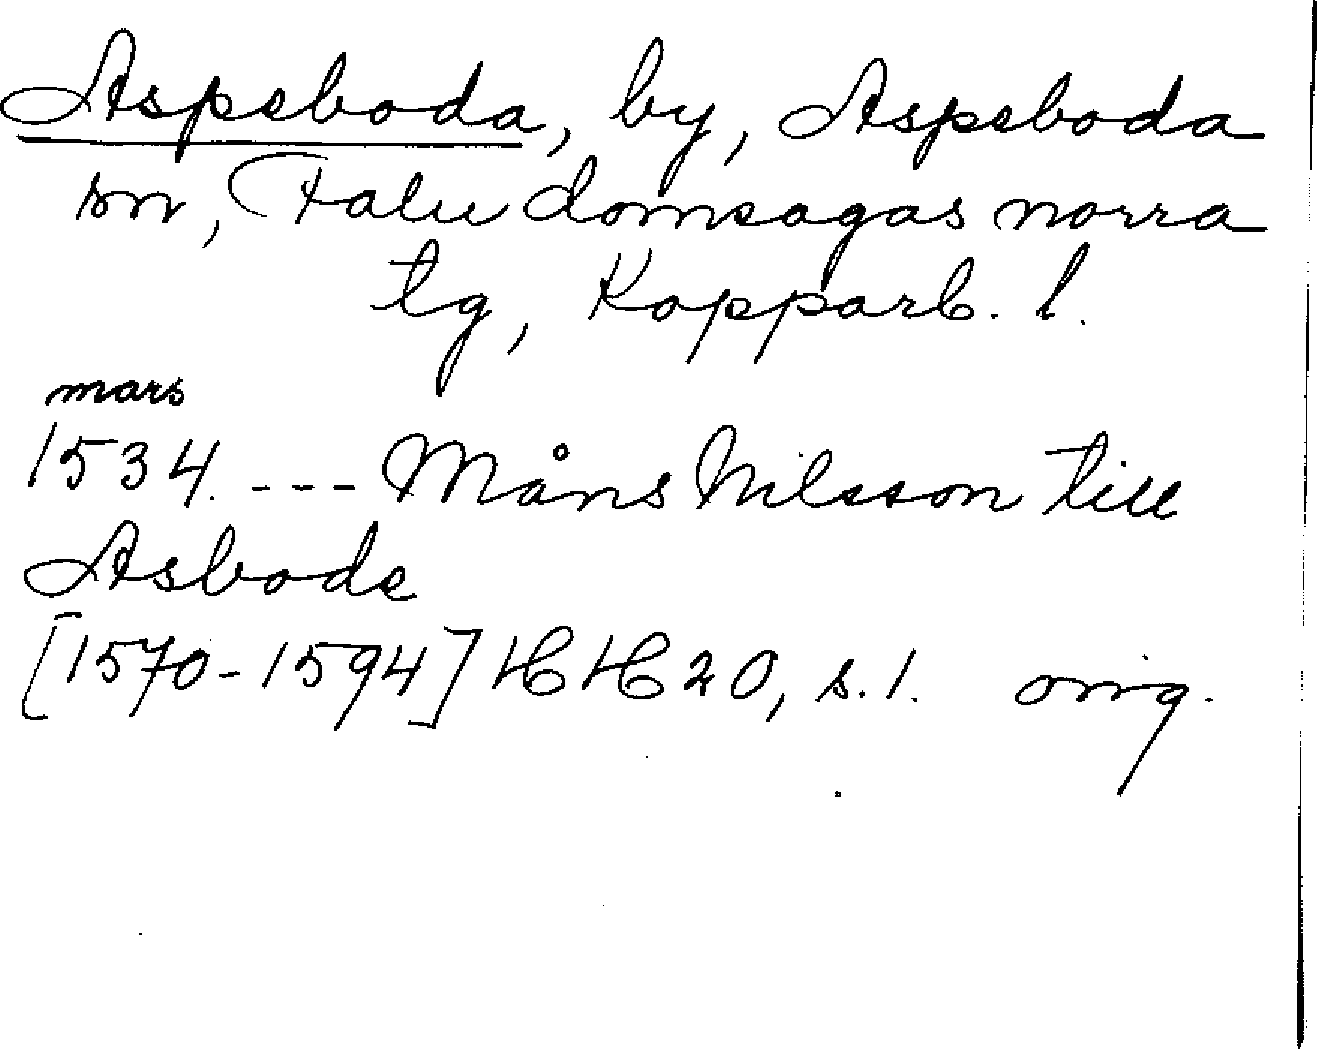 Aspeboda, by, Aspeboda
sn, Falu domsagas norra
tg, Kopparb. l.
mars
1534. --- Måns Nilsson till
Asbode
[1570-1594] HH 20, s. 1. orig.